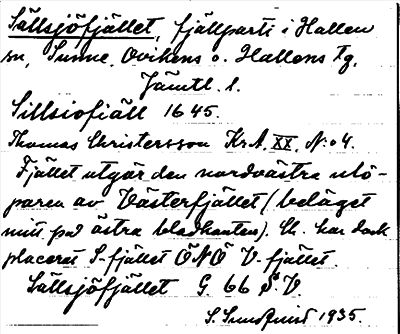 Sällsjöfjället, fjällparti i Hallen
sn, Sunne, Ovikens o. Hallens tg,
Jämtl. l.
Sillsiofiäll 1645.
Thomas Christersson KrA. XX. N:o 4.
Fjället utgör den nordvästra utlö-
paren av Västerfjället (beläget
mitt på östra bladkanten). Ch. har dock
placerat S-fjället ÖNÖ V-fjället.
Sällsjöfjället G 66 S.V.
S. Sundqvist 1935.